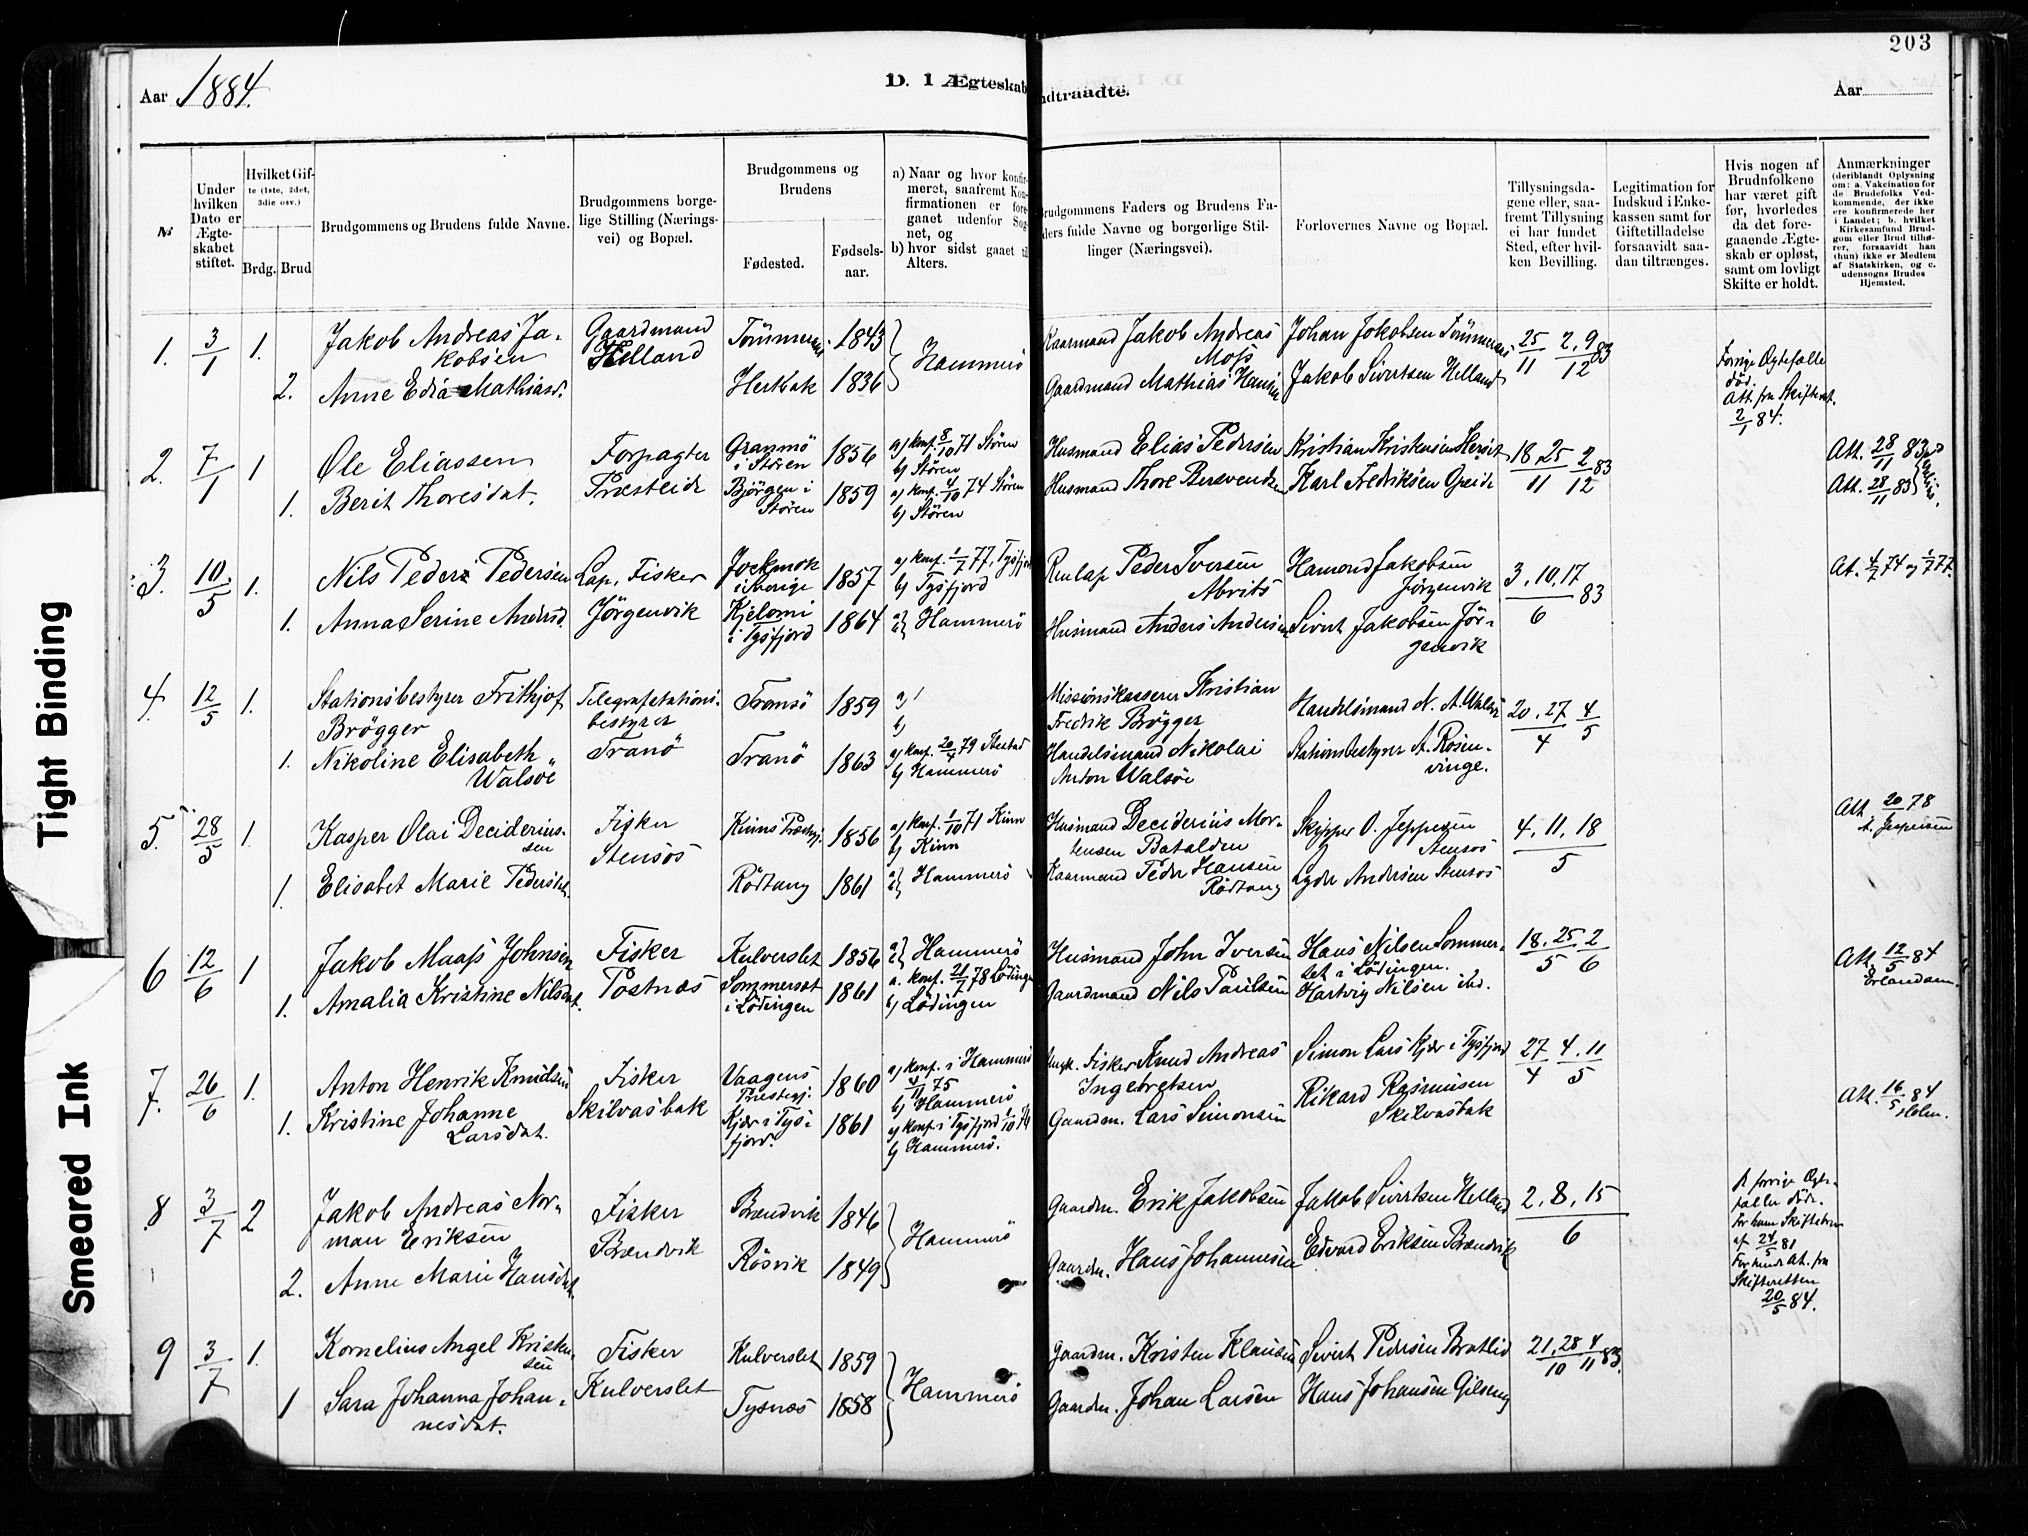 203
Aar 1884.
D. I Ægteskab
ndtraadte.
Aar
№
Under hvilken Dato er Ægteskabet stiftet.
Hvilket Gifte (1ste, 2det, 3die osv.)
Brdg. Brud
Brudgommens og Brudens fulde Navne.
Brudgommens borgelige Stilling (Næringsvei) og Bopæl.
Brudgommens og Brudens
Fødested.
Fødselsaar.
a) Naar og hvor konfirmeret, saafremt Konfirmationen er foregaaet udenfor Sognet, og
b) hvor sidst gaaet til Alters.
Brudgommens Faders og Brudens Faders fulde Navne og borgerlige Stillinger (Næringsvei).
Forlovernes Navne og Bopæl.
Tillysningsdagene eller, saafremt Tillysning ei har fundet Sted, efter hvilken Bevilling.
Legitimation for Indskud i Enkekassen samt for Giftetilladelse forsaavidt saadan tiltrænges.
Hvis nogen af Brudnfolkene har været gift før, hvorledes da det foregaaende Ægteskab er opløst, samt om lovligt Skifte er holdt.
Anmærkninger (deriblandt Oplysning om: a. Vakcination for de Brudefolks Vedkommende, der ikke ere konfirmerede her i Landet; b. hvilket Kirkesamfund Brudgom eller Brud tilhører, forsaavidt han (hun) ikke er Medlem af Statskirken, og c. udensogns Brudes Hjemsted.
1. 3/1 1. Jakob Andreas Jakobsen Gaardmand Helland 1843 Hammerö Kaarmand Jakob Andreas Moss Johan Jakobsen 25/11 2,9/12 83
2. Anne Edia Mathiasd. Herbak 1836 Gaardmand Mathias Hansen Jakob Sivertsen Helland
Forrige Ægtefælle död. Att. fra Skifteret. 2/1 84.
2. 7/1 1 Ole Eliassen Forpagter Granmö i Stören 1856 a) konf. 8/10 71 Stören b) Stören Husmand Elias Pedersen 18,25/11 2/12 83 Att. 28/11 83
1. Berit Thoresdat. Præsteide Björgen i Stören 1859 a) konf. 4/10 74 Stören b) Stören Husmand Thore Karl Fredriksen Att. 28/11 83
3. 10/5 1. Nils Peder Pedersen Lap, Fisker Jockmok i Sverige 1857 a) konf. 1/7 77, Tysfjord b) Tysfjord Renlap Peder Iversen Hamond Jakobsen Jörgenvik 3,10,17/6 83 At. 4/7 74 og 1/7 77.
1. Anna Serine Andersd. Jörgenvik Kjelomi i Tysfjord 1864 Hammerö Husmand Anders Andersen Sivert Jakobsen Jörgenvik
4. 12/5 1. Stationsbestyrer Frithjof Brögger Telegrafstationsbestyrer Tromsö 1859 a) b) Missionskasserer Kristian Fredrik Brögger Handelsmand N. A. Walsöe 20,27/4 4/5
1. Nikoline Elisabeth Walsöe Tranö Tranö 1863 a) konf. 20/4 79 b) Hammerö Handelsmand Nikolai Anton Walsöe Stationsbestyrer A. Rosenvinge.
5. 28/5 1. Kasper Olai Desideriussen Fisker Stensos Kinns Præstegj. 1856 a) konf. 1/10 71 Kinn b) Kinn Husmand Deciderius Mortensen Batalden Skipper O. Jeppesen Stensos 4,11,18/5 Att. 20/ 78 Jespersen
1. Elisabet Marie Pedersdat. Rödtang 1861 Hammerö Kaarmand Peder Hansen Rödtang Lyder Andersen Stensos
6 12/6 1 Jakob Maass Johnsen Fisker Kulverslet 1856 Hammerö Husmand John Iversen Hans Nilsen Sommerset i Lödingen. 18,25/5 2/6 Att. 12/5 84 Erlandsen.
1. Amalia Kristine Nilsdat. Postnæs Sommerset i Lödingen 1861 a. konf. 21/7 78 Lödingen b) Lödingen Gaardmand Nils Paulsen Hartvig Nilsen ibd.
7. 26/6 1. Anton Henrik Knudsen Fisker Vaagens Præstegj. 1860 a) konf. i Hammerö 4/11 75 b) Hammerö Fisker Knud Andreas Ingebretsen Simon Lars Kjær i Tysfjord 27/4 4,11/5
1. Kristine Johanne Larsdat. Skilvasbak Kjær i Tysfjord. 1861 a) konf. i Tysfjord b) Hammerö. Gaardm. Lars Simonsen Rikard Rasmusen Skilvasbak Att. 16/5 84 Holm.
8 3/7 2 Jakob Andreas Norman Eriksen Fisker Brændvik 1846 Hammerö Gaardm. Erik Jakobsen Jakob Sivertsen Helland 2,8,15/6
2. Anne Marie Hansdat. Brændvik Rösvik 1849 Gaardm. Hans Johannesen Edvard Eriksen Brændvik
forrige Ægtefæller döde. For ham Skiftebrev af 24/5 81 For hende At. fra Skifteretten 20/5 84.
9 3/7 1. Kornelius Angel Kristensen Fisker Kulverslet 1859 Hammerö Gaardm. Kristen Klausen Sivert Pedersen Bratlid 21,28/10 4/11 83
1 Sara Johanna Johannesdat. Kulverslet Tysnes 1858 Gaardm. Johan Larsen Hans Johansen
Tight Binding
Smeared Ink